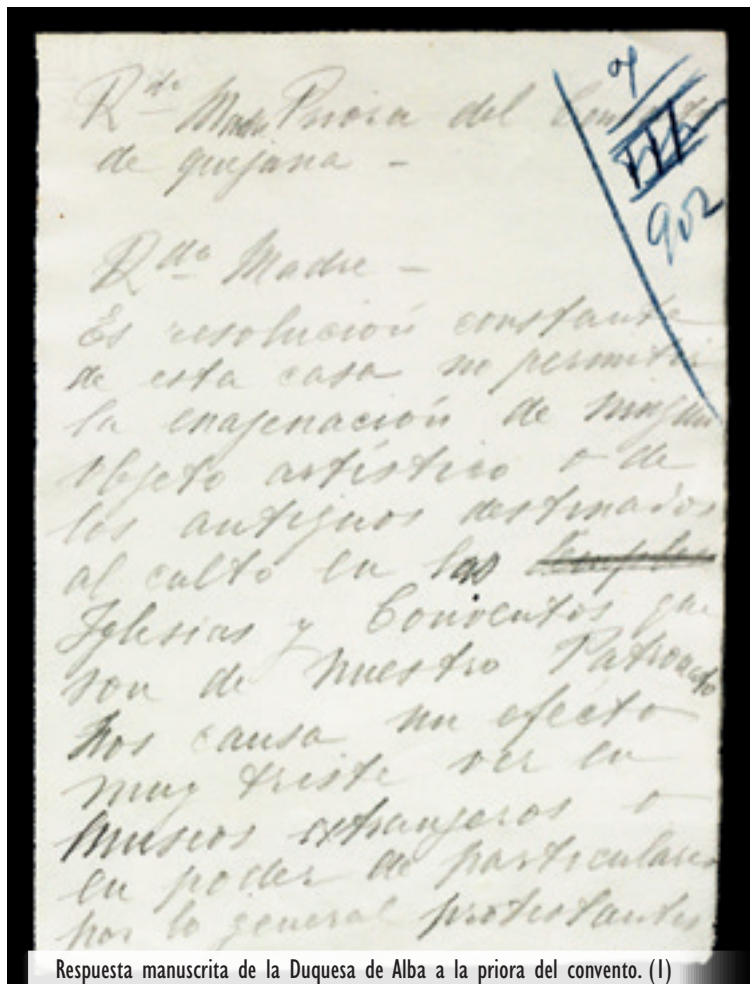 Rda Madre Priora del Convento
de quejana -
7
III
902
Rda Madre -
Es resolución constante
de esta casa no permitir
la enajenación de ningun
objeto artístico o de
los antiguos destinados
al culto en las templos
Iglesias y Conventos que
son de nuestro Patronato
Nos causa un efecto
muy triste ver en
Museos extranjeros o
en poder de particulares
por lo general protestantes
Respuesta manuscrita de la Duquesa de Alba a la priora del convento. (1)